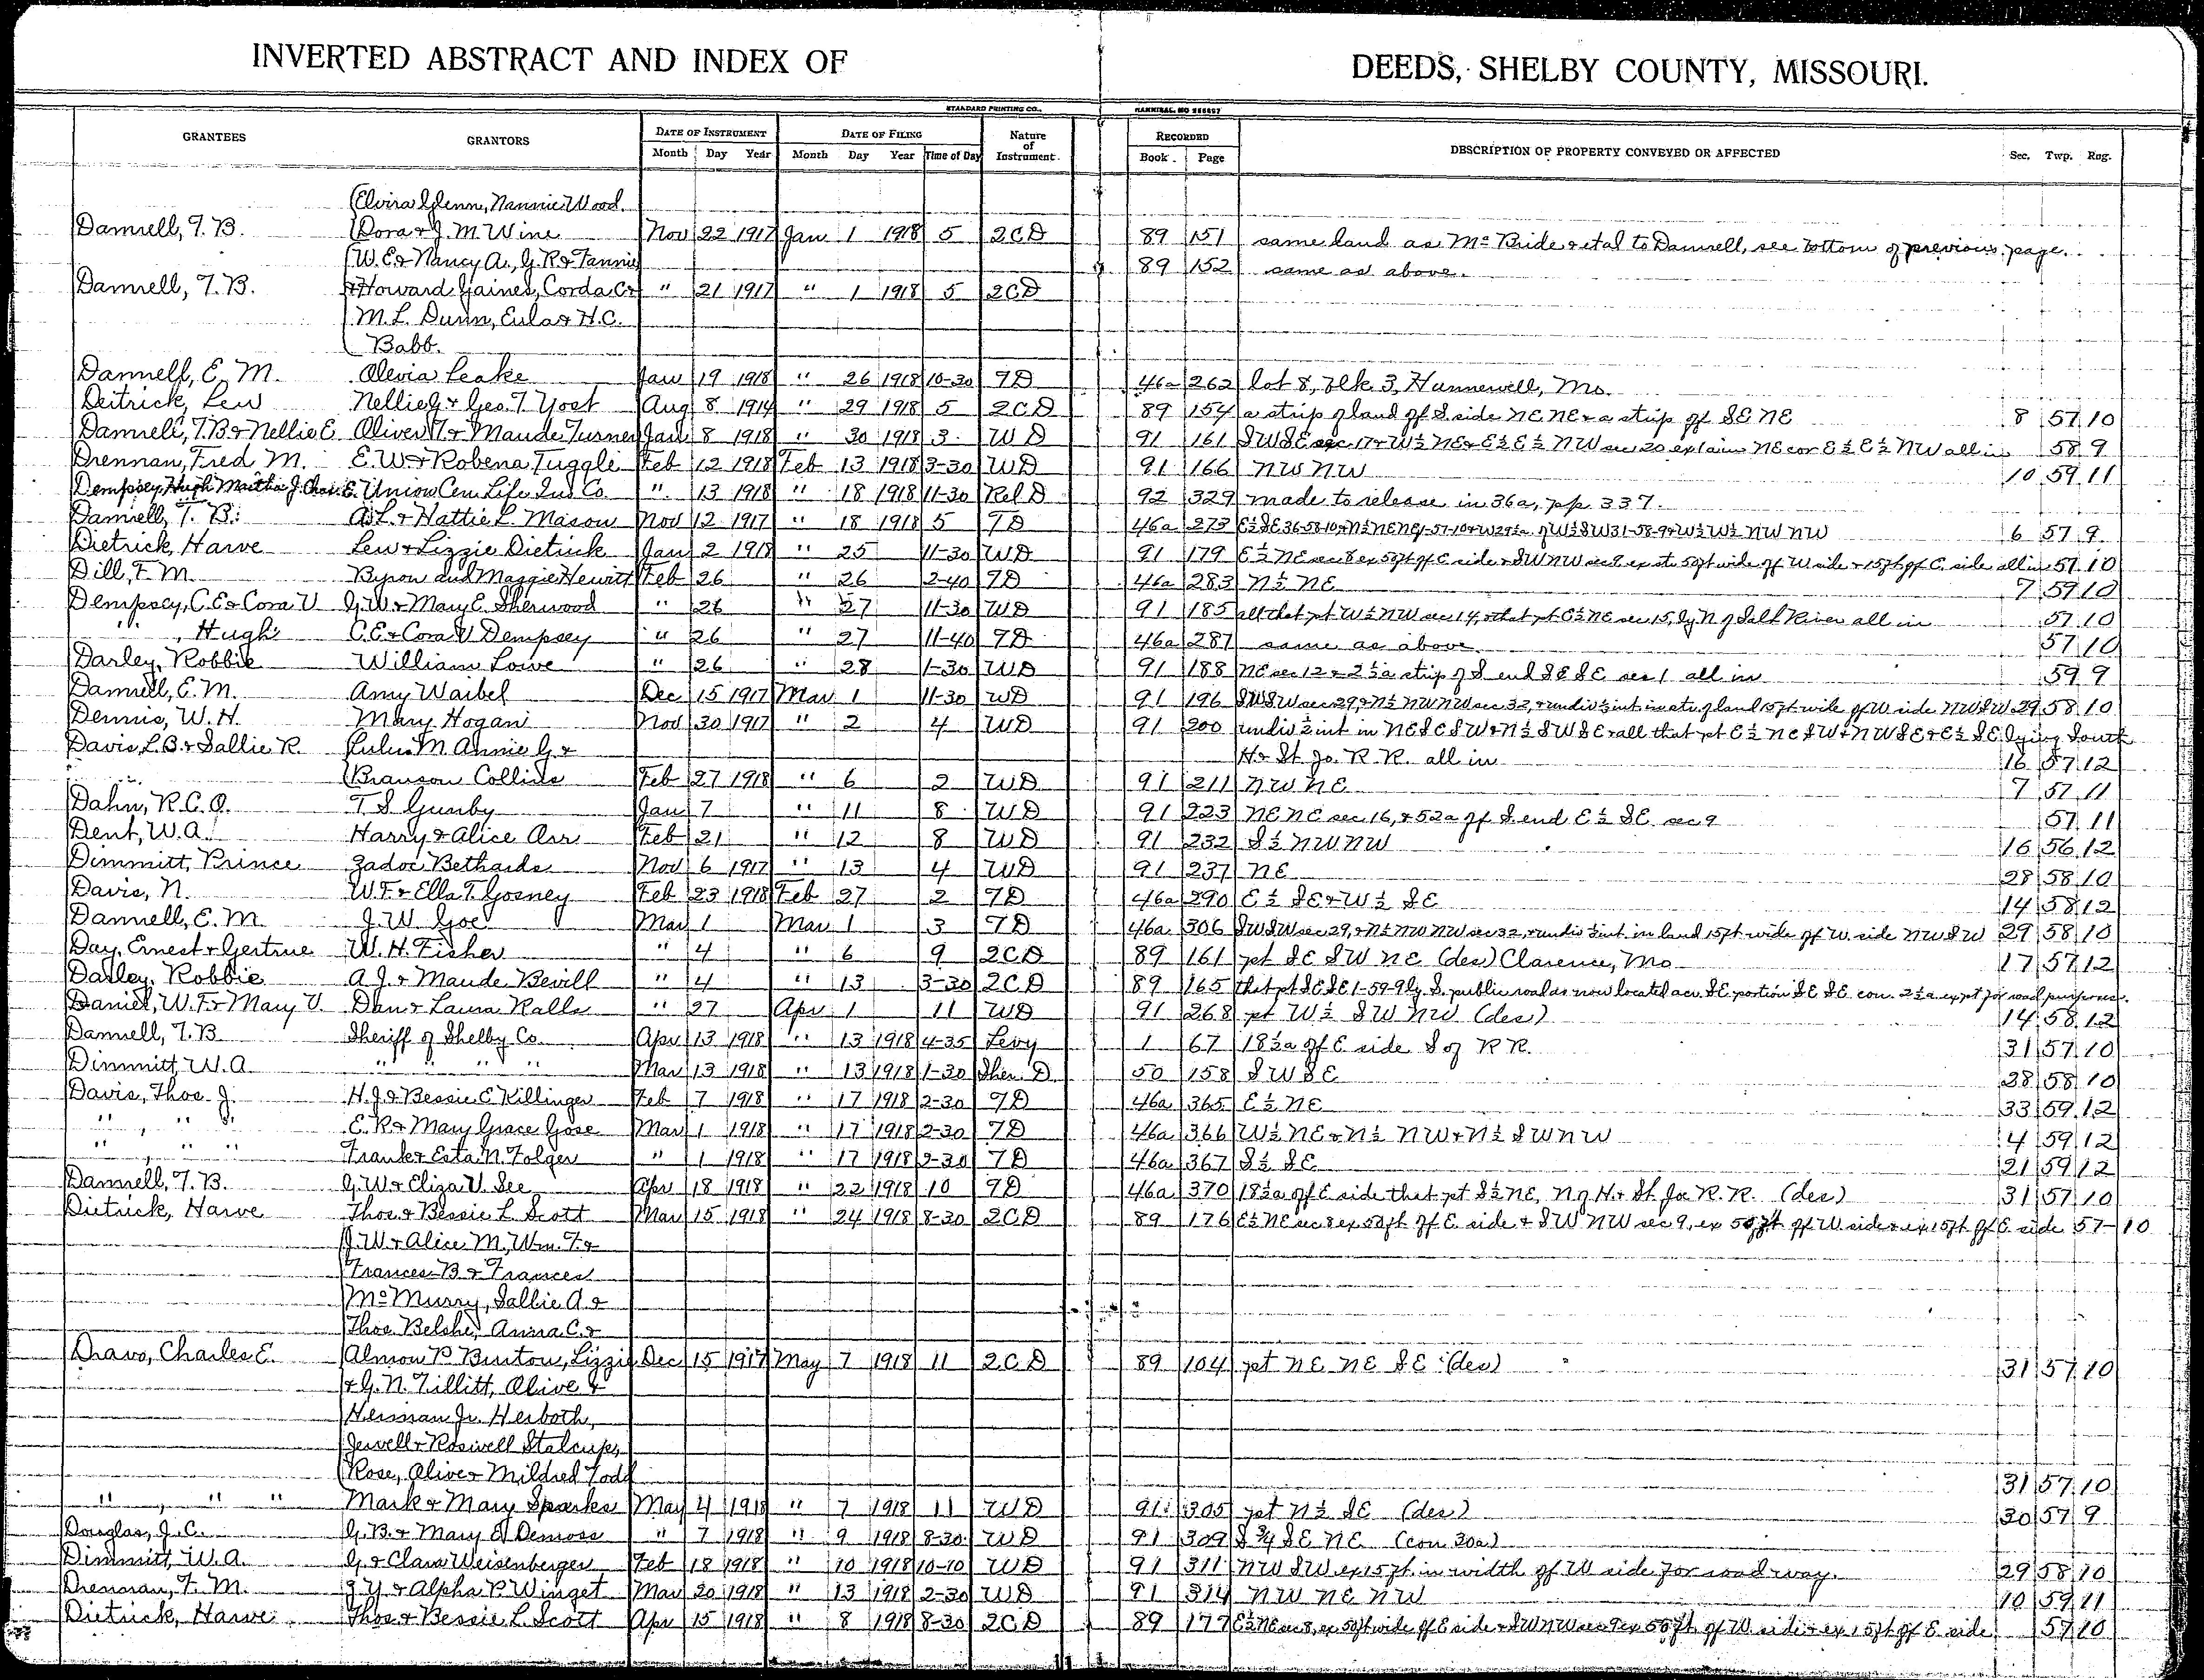 INVERTED ABSTRACT AND INDEX OF DEEDS, SHELBY COUNTY, MISSOURI.
STANDARD PRINTING CO., HANNIBAL, MO
GRANTEES GRANTORS DATE OF INSTRUMENT DATE OF FILING Nature of Instrument. RECORDED DESCRIPTION OF PROPERTY CONVEYED OR AFFECTED Sec. Twp. Rng.
Month Day Year Month Day Year Time of Day Book. Page
(Elvira Glenn, Nannie Wood.
Damrell, T. B. (Dora & J. M. Wine Nov 22 1917 Jan 1 1918 5 2CD 89 151 same land as McBride & etal to Damrell, see bottom of previous page.
(W. E. & Nancy A., G. R. & Fannie 89 152 same as above.
Damrell, T. B. & Howard Gaines, Corda C & " 21 1917 " 1 1918 5 2CD
(M. L. Dunn, Eula & H. C.
( Babb.
Damrell, E. M. Olevia Leake Jan 19 1918 " 26 1918 10-30 TD 46a 262 lot 8, blk 3, Hunnewell, Mo.
Deitrick, Lew Nellie G & Geo. T Yost Aug 8 1914 " 29 1918 5 2CD 89 154 a strip of land off S side NE NE & a strip off SE NE 8 57 10
Damrell, T. B & Nellie E. Oliver T. & Maude Turner Jan 8 1918 " 30 1918 3 WD 91 161 SW SE sec 17 & W½ NE & E½ E½ NW sec 20 ex 1a in NE cor E½ E½ NW all in 58 9
Drennan, Fred M. E. W. & Robena Tuggle Feb 12 1918 Feb 13 1918 3-30 WD 91 166 NW NW 10 59 11
Dempsey, Hugh Martha J. Chas. E. Union Cen Life Ins Co " 13 1918 " 18 1918 11-30 Rel D 92 329 made to release in 36a, pp 337.
Damrell, T. B. A. L. & Hattie L. Mason Nov 12 1917 " 18 1918 5 TD 46a 273 E½ SE 36-58-10 & N½ NE NE 1-57-10 & W 29½a of W½ SW 31-58-9 & W½ W½ NW NW 6 57 9
Dietrick, Harve Lew & Lizzie Dietrick Jan 2 1918 " 25 11-30 WD 91 179 E½ NE sec 8 ex 50ft off E side & SW NW sec 9 ex st. 50ft wide off W side & 15ft off E side all in 57 10
Dill, F. M. Byron and Maggie Hewitt Feb 26 " 26 2-40 TD 46a 283 N½ NE 7 59 10
Dempsey, C. E. & Cora V G. W. & Mary E. Sherwood " 26 " 27 11-30 WD 91 185 all that pt W½ NW sec 14, & that pt E½ NE sec 15, ly N of Salt River all in 57 10
" , Hugh C. E. & Cora V Dempsey " 26 " 27 11-40 TD 46a 287 same as above. 57 10
Darley, Robbie William Lowe " 26 " 28 1-30 WD 91 188 NE sec 12 & 2½a strip off S end SE SE sec 1 all in 59 9
Damrell, E. M. Amy Waibel Dec 15 1917 Mar 1 11-30 WD 91 196 SW SW sec 29 & N½ NW NW sec 32, & undiv ½ int in str. of land 15ft wide off W side NW SW 29 58 10
Dennis, W. H. Mary Hogan Nov 30 1917 " 2 4 WD 91 200 undiv ½ int in NE SE SW & N½ SW SE & all that pt E½ NE SW & NW SE & E½ SE lying South
Davis, L. B. & Sallie R. (Lulu M Annie G & H & St. Jo. R. R. all in 16 57 12
" " (Branson Collins Feb 27 1918 " 6 2 WD 91 211 NW NE 7 57 11
Dahn, R. C. O. T. S Gunby Jan 7 " 11 8 WD 91 223 NE NE sec 16, & 52a off S end E½ SE sec 9 57 11
Dent, W. A. Harry & Alice Orr Feb 21 " 12 8 WD 91 232 S½ NW NW 16 56 12
Dimmitt, Prince Zadoc Bethards Nov 6 1917 " 13 4 WD 91 237 NE 28 58 10
Davis, N. W. F. & Ella T. Gosney Feb 23 1918 Feb 27 2 TD 46a 290 E½ SE & W½ SE 14 58 12
Damrell, E. M. J. W. Goe Mar 1 Mar 1 3 TD 46a 306 SW SW sec 29, & N½ NW NW sec 32, & undiv ½ int. in land 15ft wide off W. side NW SW 29 58 10
Day, Ernest & Gertrue W. H. Fisher " 4 " 6 9 2CD 89 161 pt SE SW NE (des) Clarence, Mo 17 57 12
Darley, Robbie A. J. & Maude Bevill " 4 " 13 3-30 2CD 89 165 that pt SE SE 1-59-9 ly. S. public road as now located acr. SE portion SE SE con. 2½a except for road purposes.
Daniel, W. F. & Mary V. Dan & Laura Ralls " 27 Apr 1 11 WD 91 268 pt W½ SW NW (des) 14 58 12
Damrell, T. B. Sheriff of Shelby Co. Apr 13 1918 " 13 1918 4-35 Levy 1 67 18½a off E side S of R R. 31 57 10
Dimmitt, W. A. " " " " Mar 13 1918 " 13 1918 1-30 Sher. D. 50 158 SW SE 28 58 10
Davis, Thos. J. H. J. & Bessie E Killinger Feb 7 1918 " 17 1918 2-30 TD 46a 365 E½ NE 33 59 12
" , " " E. R. & Mary Grace Gose Mar 1 1918 " 17 1918 2-30 TD 46a 366 W½ NE & N½ NW & N½ SW NW 4 59 12
" , " " Frank & Esta N. Folger " 1 1918 " 17 1918 2-30 TD 46a 367 S½ SE 21 59 12
Damrell, T. B. G. W. & Eliza V. See Apr 18 1918 " 22 1918 10 TD 46a 370 18½a off E side that pt S½ NE, N of H. & St. Joe R. R. (des) 31 57 10
Dietrick, Harve Thos. & Bessie L. Scott Mar 15 1918 " 24 1918 8-30 2CD 89 176 E½ NE sec 8 ex 50ft off E. side & SW NW sec 9, ex 50ft off W side & ex 15ft off E side 57-10
(J. W. & Alice M., Wm. F. &
(Frances B & Frances
(McMurry, Sallie A. &
(Thos. Belshe, Anna C. &
Dravo, Charles E. (Almon P Buxton, Lizzie Dec 15 1917 May 7 1918 11 2CD 89 104 pt NE NE SE (des) 31 57 10
(& G. N. Tillitt, Olive &
(Herman Jr. Herboth,
(Jewell & Roswell Stalcup,
(Rose, Olive & Mildred Todd 31 57 10
" , " " Mark & Mary Sparks May 4 1918 " 7 1918 11 WD 91 305 pt N½ SE (des)
Douglas, J. C. G. B. & Mary E. Demoss " 7 1918 " 9 1918 8-30 WD 91 309 S ¾ SE NE (con 30a) 30 57 9
Dimmitt, W. A. G. & Clara Weisenberger Feb 18 1918 " 10 1918 10-10 WD 91 311 NW SW ex 15ft. in width off W side for roadway. 29 58 10
Drennan, F. M. J. Y & Alpha P. Winget Mar 20 1918 " 13 1918 2-30 WD 91 314 NW NE NW 10 59 11
Dietrick, Harve Thos & Bessie L. Scott Apr 15 1918 " 8 1918 8-30 2CD 89 177 E½ NE sec 8, ex 50ft wide off E side & SW NW sec 9 ex 50ft. off W. side & ex 15ft off E. side 57 10